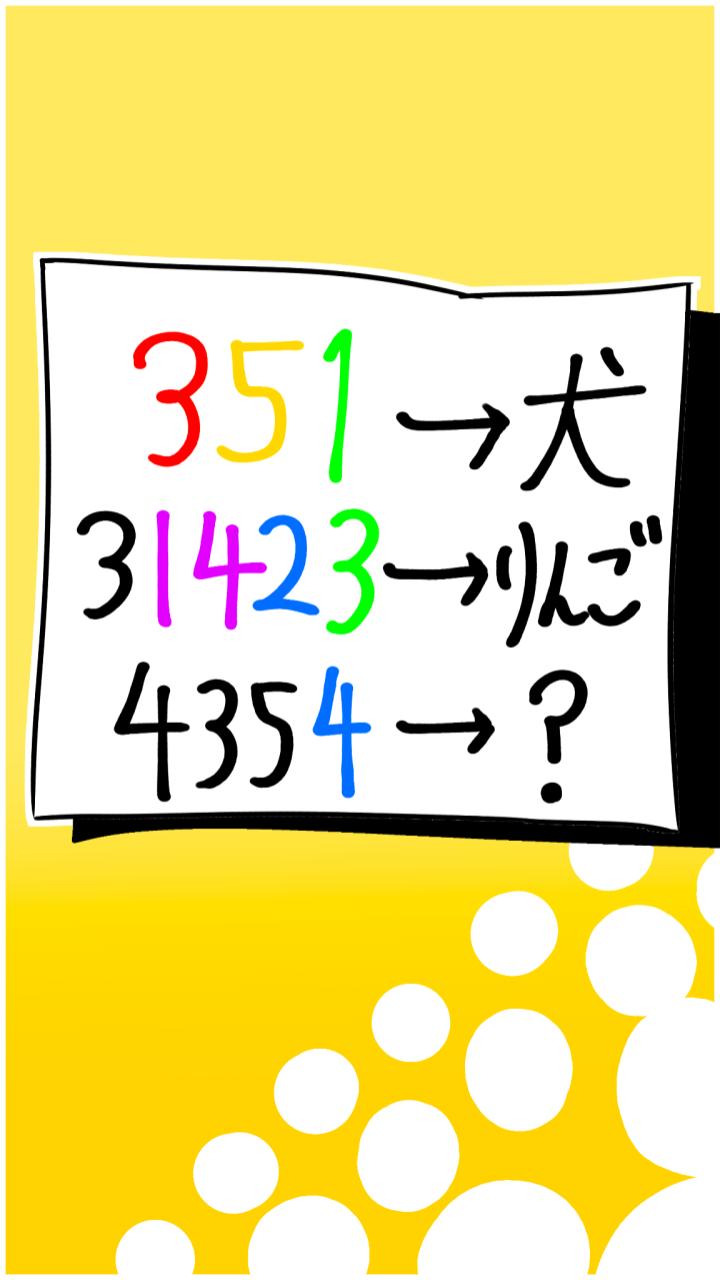 351→犬
31423→りんご
4354→?